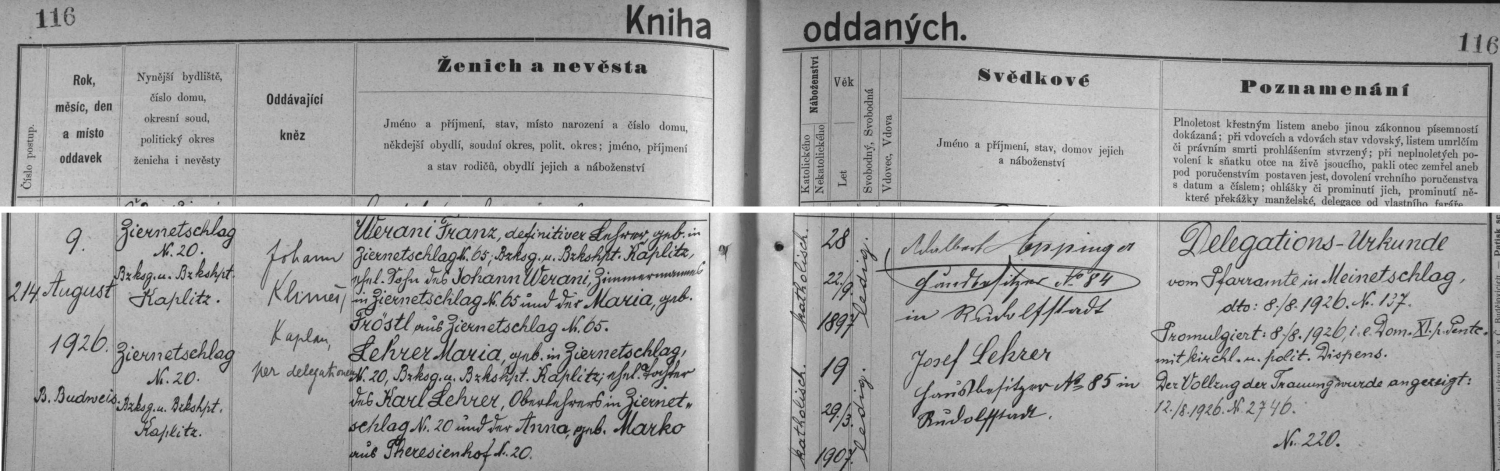 116
Kniha
oddaných.
116
Číslo postup.
Rok,
měsíc, den
a místo
oddavek
Nynější bydliště,
číslo domu,
okresní soud,
politický okres
ženicha i nevěsty
Oddávající
kněz
Ženich a nevěsta
Jméno a příjmení, stav, místo narození a číslo domu,
někdejší obydlí, soudní okres, polit. okres; jméno, příjmení
a stav rodičů, obydlí jejich a náboženství
Náboženství
Katolického
Nekatolického
Věk
Let
Svobodný, Svobodná
Vdovec, Vdova
Svědkové
Jméno a příjmení, stav, domov jejich
a náboženství
Poznamenání
Plnoletost křestným listem anebo jinou zákonnou písemností
dokázaná; při vdovcích a vdovách stav vdovský, listem umrlčím
či právním smrti prohlášením stvrzený; při neplnoletých po-
volení k sňatku otce na živě jsoucího, pakli otec zemřel aneb
pod poručenstvím postaven jest, dovolení vrchního poručenstva
s datum a číslem; ohlášky či prominutí jich, prominutí ně-
které překážky manželské, delegace od vlastního faráře
214
9.
August
1926.
B. Budweis.
Ziernetschlag
N. 20.
Bzksg. u. Bzkshpt.
Kaplitz.
Ziernetschlag
N. 20.
Bzksg. u. Bzkshpt.
Kaplitz.
Johann
Klimeš,
Kaplan,
per delegationem
Werani Franz, definitiver Lehrer, geb. in
Ziernetschlag N. 65, Bzksg. u. Bzkshpt. Kaplitz,
ehel. Sohn des Johann Werani, Zimmermannes
in Ziernetschlag N. 65 und der Maria, geb.
Fröstl aus Ziernetschlag N. 65.
Lehrer Maria, geb. in Ziernetschlag,
N. 20, Bzksg. u. Bzkshpt. Kaplitz; ehel. Tochter
des Karl Lehrer, Oberlehrers in Ziernet-
schlag N. 20 und der Anna, geb. Marko
aus Theresienhof N. 20.
katholisch.
28
22/9
1897
ledig.
katholisch.
19
29/3.
1907.
ledig.
Adalbert Eppinger
Grundbesitzer No 84
in Rudolfstadt
Josef Lehrer
Hausbesitzer No 85 in
Rudolfstadt.
Delegations-Urkunde
vom Pfarramte in Meinetschlag,
dto: 8./8. 1926. N. 137.
Promulgiert: 8./8. 1926, i. e. Dom. XI. p. Pente.
mit kirchl. u. polit. Dispens.
Der Vollzug der Trauung wurde angezeigt:
12./8. 1926. N. 2746.
N. 220.